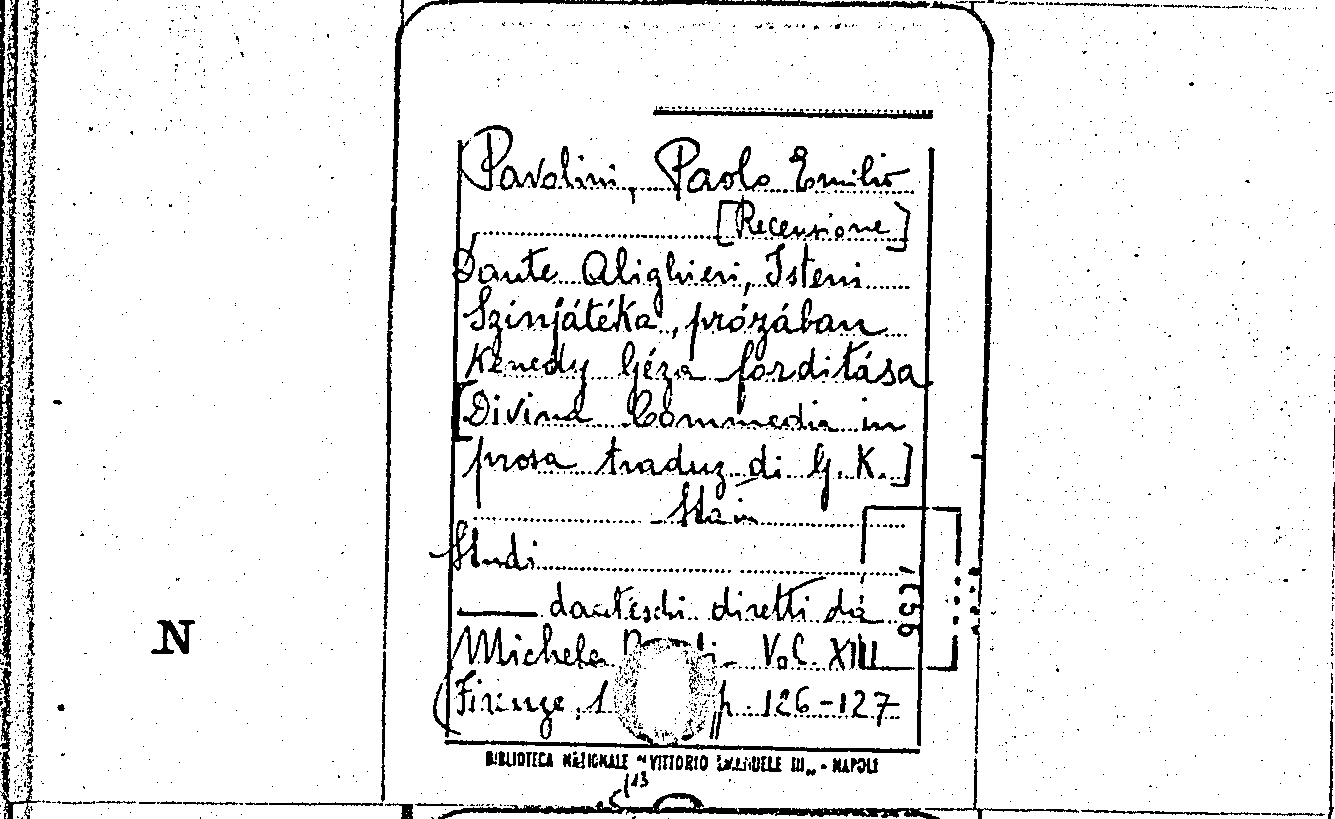 Pavolini, Paolo Emilio
[Recensione]
Dante Alighieri, Isteni
Szinjátéka, prózában
Kenedy Géza forditása
[Divina Commedia in
prosa traduz. di G. K.]
Sta in
Studi
danteschi diretti da
Michele Vol. XIII
Firenze, 1 p. 126-127
BIBLIOTECA NAZIONALE "VITTORIO EMANUELE III" - NAPOLI
N